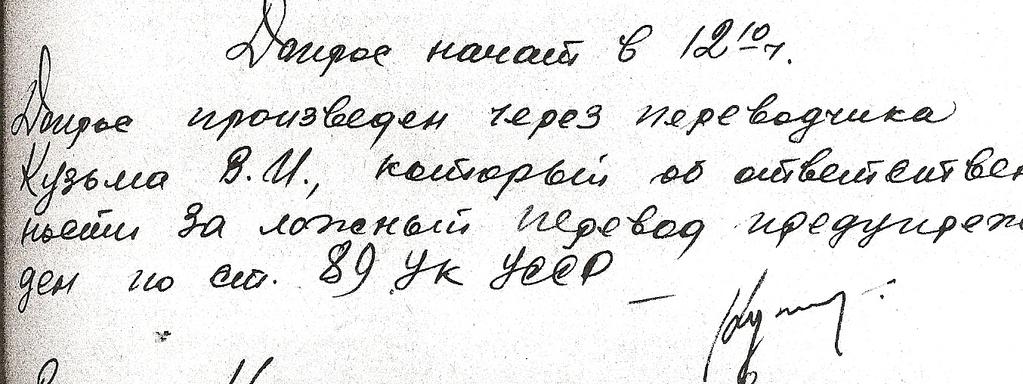 Допрос начат в 12 10 ч.
Допрос произведен через переводчика
Кузьма В.И., который об ответствен
ности за ложный перевод предупреж
ден по ст. 89 УК УССР –